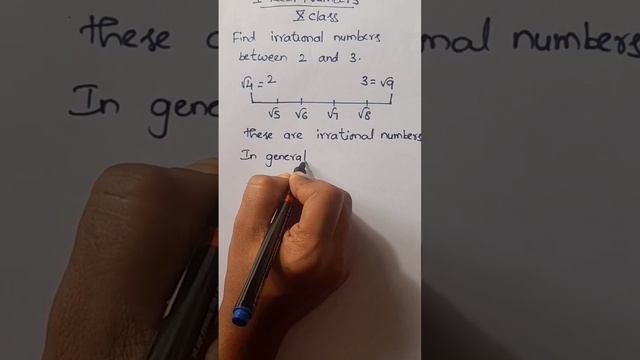 Numbers
X class
Find irrational numbers
between 2 and 3.
√4 = 2 3 = √9
√5 √6 √7 √8
these are irrational numbers
In general